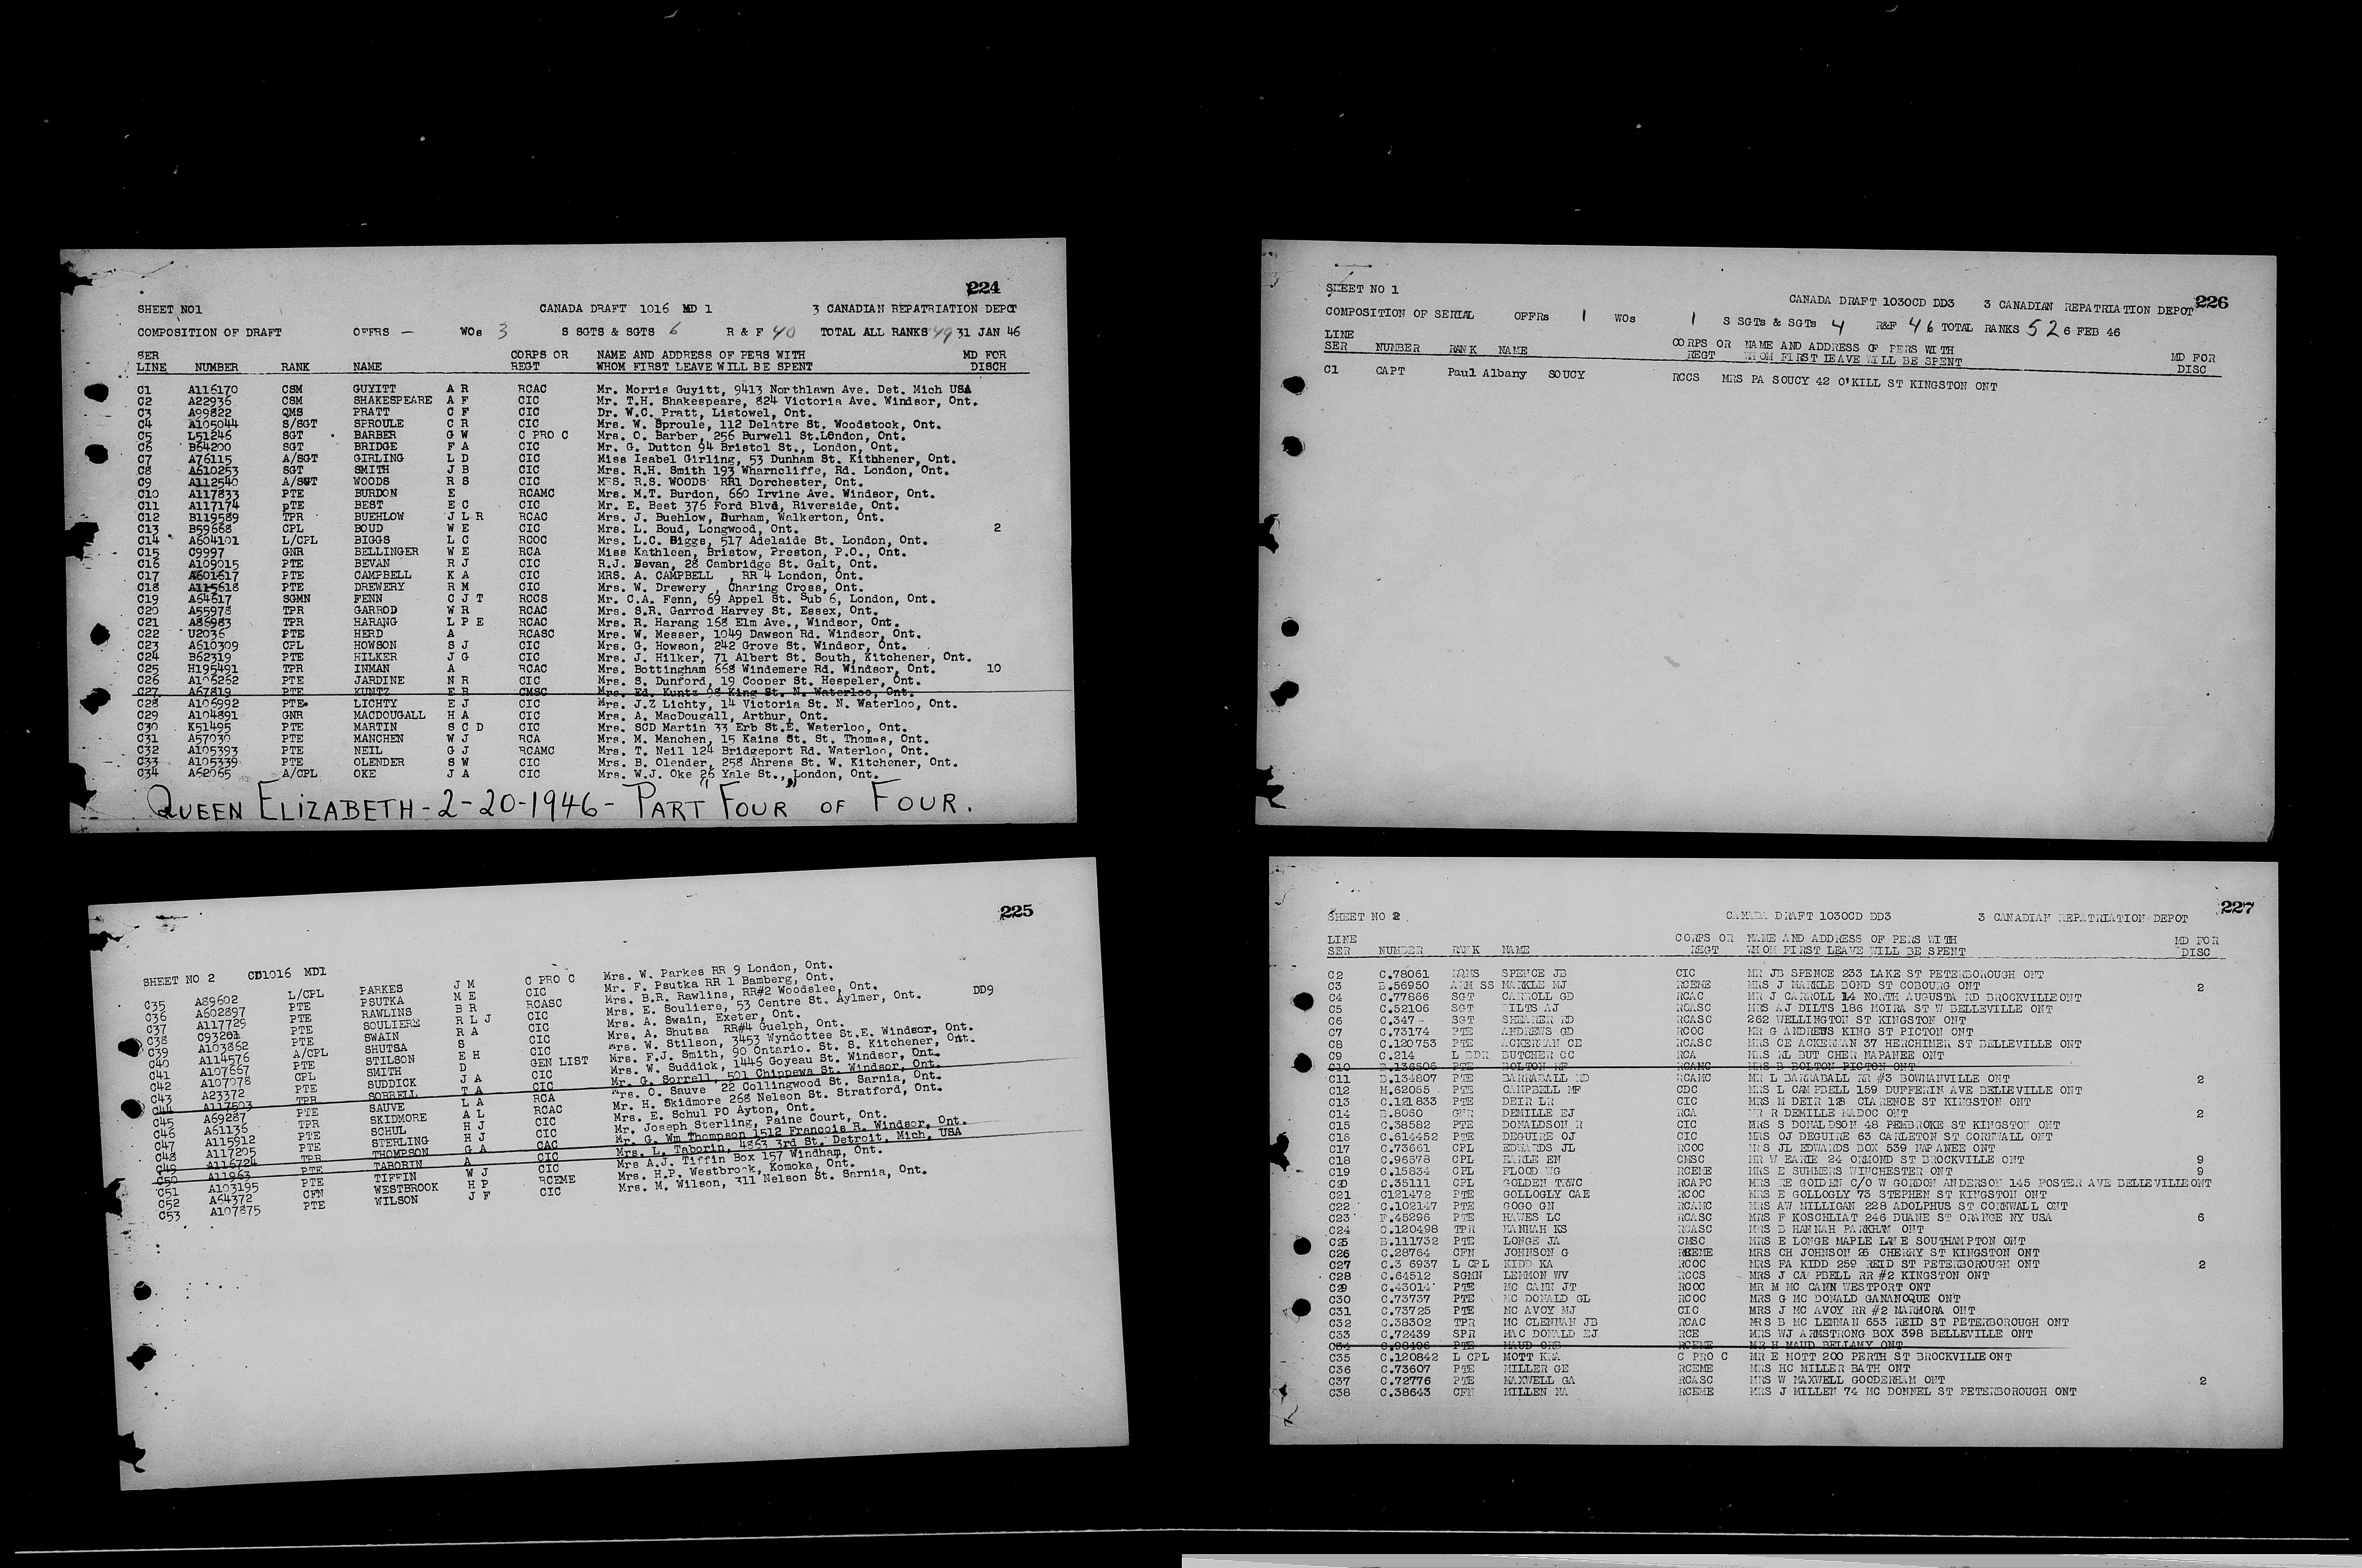 224
SHEET NO1 CANADA DRAFT 1016 MD 1 3 CANADIAN REPATRIATION DEPOT
COMPOSITION OF DRAFT OFFRS — WOs 3 S SGTS & SGTS 6 R & F 40 TOTAL ALL RANKS 49 31 JAN 46
SER CORPS OR NAME AND ADDRESS OF PERS WITH MD FOR
LINE NUMBER RANK NAME REGT WHOM FIRST LEAVE WILL BE SPENT DISCH
C1 A116170 CSM GUYITT A R RCAC Mr. Morris Guyitt, 9413 Northlawn Ave. Det. Mich USA
C2 A22936 CSM SHAKESPEARE A F CIC Mr. T.H. Shakespeare, 824 Victoria Ave. Windsor, Ont.
C3 A99822 QMS PRATT C F CIC Dr. W.C. Pratt, Listowel, Ont.
C4 A105044 S/SGT SPROULE C R CIC Mrs. W. Sproule, 112 Delatre St. Woodstock, Ont.
C5 L51246 SGT BARBER G W C PRO C Mrs. O. Barber, 256 Burwell St.London, Ont.
C6 B64200 SGT BRIDGE F A CIC Mr. G. Dutton 94 Bristol St., London, Ont.
C7 A76115 A/SGT GIRLING L D CIC Miss Isabel Girling, 53 Dunham St. Kithhener, Ont.
C8 A610253 SGT SMITH J B CIC Mrs. R.H. Smith 193 Wharncliffe, Rd. London, Ont.
C9 A112540 A/SGT WOODS R S CIC MrS. R.S. WOODS RR1 Dorchester, Ont.
C10 A117833 PTE BURDON E RCAMC Mrs. M.T. Burdon, 660 Irvine Ave. Windsor, Ont.
C11 A117174 pTE BEST E C CIC Mr. E. Best 376 Ford Blvd, Riverside, Ont.
C12 B119589 TPR BUEHLOW J L R RCAC Mrs. J. Buehlow, Durham, Walkerton, Ont.
C13 B59668 CPL BOUD W E CIC Mrs. L. Boud, Longwood, Ont. 2
C14 A604101 L/CPL BIGGS L C RCOC Mrs. L.C. Biggs, 517 Adelaide St. London, Ont.
C15 C9997 GNR BELLINGER W E RCA Miss Kathleen, Bristow, Preston, P.O., Ont.
C16 A109015 PTE BEVAN R J CIC R.J. Bevan, 28 Cambridge St. Galt, Ont.
C17 A601617 PTE CAMPBELL K A CIC MRS. A. CAMPBELL , RR 4 London, Ont.
C18 A115618 PTE DREWERY R M CIC Mrs. W. Drewery , Charing Cross, Ont.
C19 A64617 SGMN FENN C J T RCCS Mr. C.A. Fenn, 69 Appel St. Sub 6, London, Ont.
C20 A55978 TPR GARROD W R RCAC Mrs. S.R. Garrod Harvey St. Essex, Ont.
C21 A86983 TPR HARANG L P E RCAC Mrs. R. Harang 168 Elm Ave., Windsor, Ont.
C22 U2036 PTE HERD A RCASC Mrs. W. Messer, 1049 Dawson Rd. Windsor, Ont.
C23 A610309 CPL HOWSON S J CIC Mrs. G. Howson, 242 Grove St. Windsor, Ont.
C24 B62319 PTE HILKER J G CIC Mrs. J. Hilker, 71 Albert St. South, Kitchener, Ont.
C25 H195491 TPR INMAN A RCAC Mrs. Bottingham 668 Windemere Rd. Windsor, Ont. 10
C26 A106262 PTE JARDINE N R CIC Mrs. S. Dunford, 19 Cooper St. Hespeler, Ont.
C27 A67819 PTE KUNTZ E R CMSC Mrs. Ed. Kuntz 98 King St. N. Waterloo, Ont.
C28 A106992 PTE. LICHTY E J CIC Mrs. J.Z Lichty, 14 Victoria St. N. Waterloo, Ont.
C29 A104891 GNR MACDOUGALL H A CIC Mrs. A. MacDougall, Arthur, Ont.
C30 K51495 PTE MARTIN S C D CIC Mrs. SCD Martin 33 Erb St.E. Waterloo, Ont.
C31 A57030 PTE MANCHEN W J RCA Mrs. M. Manchen, 15 Kains St. St. Thomas, Ont.
C32 A105393 PTE NEIL G J RCAMC Mrs. T. Neil 124 Bridgeport Rd. Waterloo, Ont.
C33 A105339 PTE OLENDER S W CIC Mrs. B. Olender, 258 Ahrens St. W. Kitchener, Ont.
C34 A62065 A/CPL OKE J A CIC Mrs. W.J. Oke 26 Yale St., London, Ont.
QUEEN ELIZABETH - 2-20-1946 - PART "FOUR" OF FOUR.
225
SHEET NO 2 CD1016 MD1
C35 A89602 L/CPL PARKES J M C PRO C Mrs. W. Parkes RR 9 London, Ont.
C36 A602897 PTE PSUTKA M E CIC Mr. F. Psutka RR 1 Bamberg, Ont.
C37 A117729 PTE RAWLINS B R RCASC Mrs. B.R. Rawlins, RR#2 Woodslee, Ont.
C38 C93201 PTE SOULIERE R L J CIC Mrs. E. Souliere, 53 Centre St. Aylmer, Ont. DD9
C39 A103862 PTE SWAIN R A CIC Mrs. A. Swain, Exeter, Ont.
C40 A114576 A/CPL SHUTSA S CIC Mrs. A. Shutsa RR#4 Guelph, Ont.
C41 A107667 PTE STILSON E H CIC Mrs. W. Stilson, 3453 Wyndottee St.E. Windsor, Ont.
C42 A107078 CPL SMITH D GEN LIST Mrs. F.J. Smith, 90 Ontario. St. S. Kitchener, Ont.
C43 A23372 PTE SUDDICK J A CIC Mrs. W. Suddick, 1446 Goyeau St. Windsor, Ont.
C44 A117503 TPR SORRELL T A CIC Mr. G. Sorrell, 501 Chippewa St. Windsor, Ont.
C45 A69287 PTE SAUVE L A RCA Mrs. O. Sauve 22 Collingwood St. Sarnia, Ont.
C46 A61136 TPR SKIDMORE A L RCAC Mr. H. Skidmore 268 Nelson St. Stratford, Ont.
C47 A115912 PTE SCHUL H J CIC Mrs. E. Schul PO Ayton, Ont.
C48 A117205 PTE STERLING H J CIC Mr. Joseph Sterling, Paine Court, Ont.
C49 A116724 TPR THOMPSON G A CAC Mr. G. Wm Thompson 1512 Francois R. Windsor, Ont.
C50 A11963 PTE TABORIN A CIC Mrs. L. Taborin, 4863 3rd St. Detroit, Mich. USA
C51 A103195 PTE TIFFIN W J CIC Mrs A.J. Tiffin Box 157 Windham, Ont.
C52 A64372 CFN WESTBROOK H P RCEME Mrs. H.P. Westbrook, Komoka, Ont.
C53 A107875 PTE WILSON J F CIC Mrs. M. Wilson, 311 Nelson St. Sarnia, Ont.
226
SHEET NO 1 CANADA DRAFT 1030CD DD3 3 CANADIAN REPATRIATION DEPOT
COMPOSITION OF SERIAL OFFRs 1 WOs 1 S SGTs & SGTs 4 R&F 46 TOTAL RANKS 52 6 FEB 46
LINE CORPS OR NAME AND ADDRESS OF PERS WITH MD FOR
SER NUMBER RANK NAME REGT WHOM FIRST LEAVE WILL BE SPENT DISC
C1 CAPT Paul Albany SOUCY RCCS MRS PA SOUCY 42 O'KILL ST KINGSTON ONT
227
SHEET NO 2 CANADA DRAFT 1030CD DD3 3 CANADIAN REPATRIATION DEPOT
LINE CORPS OR NAME AND ADDRESS OF PERS WITH MD FOR
SER NUMBER RANK NAME REGT WHOM FIRST LEAVE WILL BE SPENT DISC
C2 C.78061 RQMS SPENCE JB CIC MR JB SPENCE 233 LAKE ST PETERBOROUGH ONT
C3 B.56950 ARM SS MARKLE MJ RCEME MRS J MARKLE BOND ST COBOURG ONT 2
C4 C.77866 SGT CARROLL GD RCAC MR J CARROLL 14 NORTH AUGUSTA RD BROCKVILLE ONT
C5 C.52106 SGT DILTS AJ RCASC MRS AJ DILTS 186 MOIRA ST W BELLEVILLE ONT
C6 C.347 SGT RCASC 262 WELLINGTON ST KINGSTON ONT
C7 C.73174 PTE ANDREWS GD RCOC MR G ANDREWS KING ST PICTON ONT
C8 C.120753 PTE ACKERMAN CE RCASC MRS CE ACKERMAN 37 HERCHIMER ST BELLEVILLE ONT
C9 C.214 L BDR BUTCHER CC RCA MRS RL BUT CHER NAPANEE ONT
C10 B.136506 PTE BOLTON RF RCAMC MRS B BOLTON PICTON ONT
C11 B.134807 PTE BARRABALL RD RCAMC MR L BARRABALL RR #3 BOWMANVILLE ONT 2
C12 M.62065 PTE CAMPBELL MF CDC MRS L CAMPBELL 159 DUFFERIN AVE BELLEVILLE ONT
C13 C.121833 PTE DEIR LR CIC MRS M DEIR 128 CLARENCE ST KINGSTON ONT
C14 B.8060 GNR DEMILLE EJ RCA MR R DEMILLE MADOC ONT 2
C15 C.38582 PTE DONALDSON R CIC MRS S DONALDSON 48 PEMBROKE ST KINGSTON ONT
C16 C.614452 PTE DEGUIRE OJ CIC MRS OJ DEGUIRE 63 CARLETON ST CORNWALL ONT
C17 C.73661 CPL EDWARDS JL RCOC MRS JL EDWARDS BOX 539 NAPANEE ONT
C18 C.96578 CPL EARLE EN CMSC MR W EARLE 24 ORMOND ST BROCKVILLE ONT 9
C19 C.15834 CPL FLOOD WG RCEME MRS E SUMMERS WINCHESTER ONT 9
C20 C.35111 CPL GOLDEN TRWC RCAPC MRS RE GOLDEN C/O W GORDON ANDERSON 145 FOSTER AVE BELLEVILLE ONT
C21 C121472 PTE GOLLOGLY CAE RCOC MRS E GOLLOGLY 73 STEPHEN ST KINGSTON ONT
C22 C.102147 PTE GOGO GN RCAMC MRS AW MILLIGAN 228 ADOLPHUS ST CORNWALL ONT
C23 F.45296 PTE HAWES LC RCASC MRS F KOSCHLIAT 246 DUANE ST ORANGE NY USA 6
C24 C.120498 TPR HANNAH KS RCASC MRS B HANNAH PARKHAM ONT
C25 B.111732 PTE LONGE JA CMSC MRS E LONGE MAPLE LANE SOUTHAMPTON ONT
C26 C.28764 CFN JOHNSON G RCEME MRS CH JOHNSON 26 CHERRY ST KINGSTON ONT
C27 C.3 6937 L CPL KIDD KA RCOC MRS FA KIDD 259 REID ST PETERBOROUGH ONT 2
C28 C.64512 SGMN LEMMON WV RCCS MRS J CAMPBELL RR #2 KINGSTON ONT
C29 C.43014 PTE MC CANN JT RCOC MR M MC CANN WESTPORT ONT
C30 C.73737 PTE MC DONALD GL RCOC MRS G MC DONALD GANANOQUE ONT
C31 C.73725 PTE MC AVOY MJ CIC MRS J MC AVOY RR #2 MARMORA ONT
C32 C.38302 TPR MC CLENNAN JB RCAC MRS B MC LENNAN 653 REID ST PETERBOROUGH ONT
C33 C.72439 SPR MAC DONALD EJ RCE MRS WJ ARMSTRONG BOX 398 BELLEVILLE ONT
C34 C.98496 PTE MAUD ORB RCEME MR H MAUD BELLAMY ONT
C35 C.120842 L CPL MOTT KRA C PRO C MR E MOTT 200 PERTH ST BROCKVILLE ONT
C36 C.73607 PTE MILLER GE RCEME MRS HC MILLER BATH ONT
C37 C.72776 PTE MAXWELL GA RCASC MRS W MAXWELL GOODERHAM ONT 2
C38 C.38643 CFN MILLEN MA RCEME MRS J MILLEN 74 MC DONNEL ST PETERBOROUGH ONT